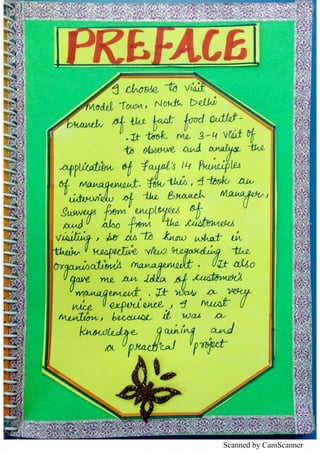 PREFACE
I choose to visit
Model Town, North Delhi
branch of the fast food outlet-
. It took me 3-4 visit of
to observe and analyse the
application of Fayol's 14 Principles
of management. For this, I took an
interview of the Branch Manager,
Surveys from employees of
and also from the customers
visiting, so as to know what in
their respective view regarding the
Organisation's management. It also
gave me an idea of customer's
management. It was a very
nice experience, I must
mention, because it was a
knowledge gaining and
a practical project
Scanned by CamScanner